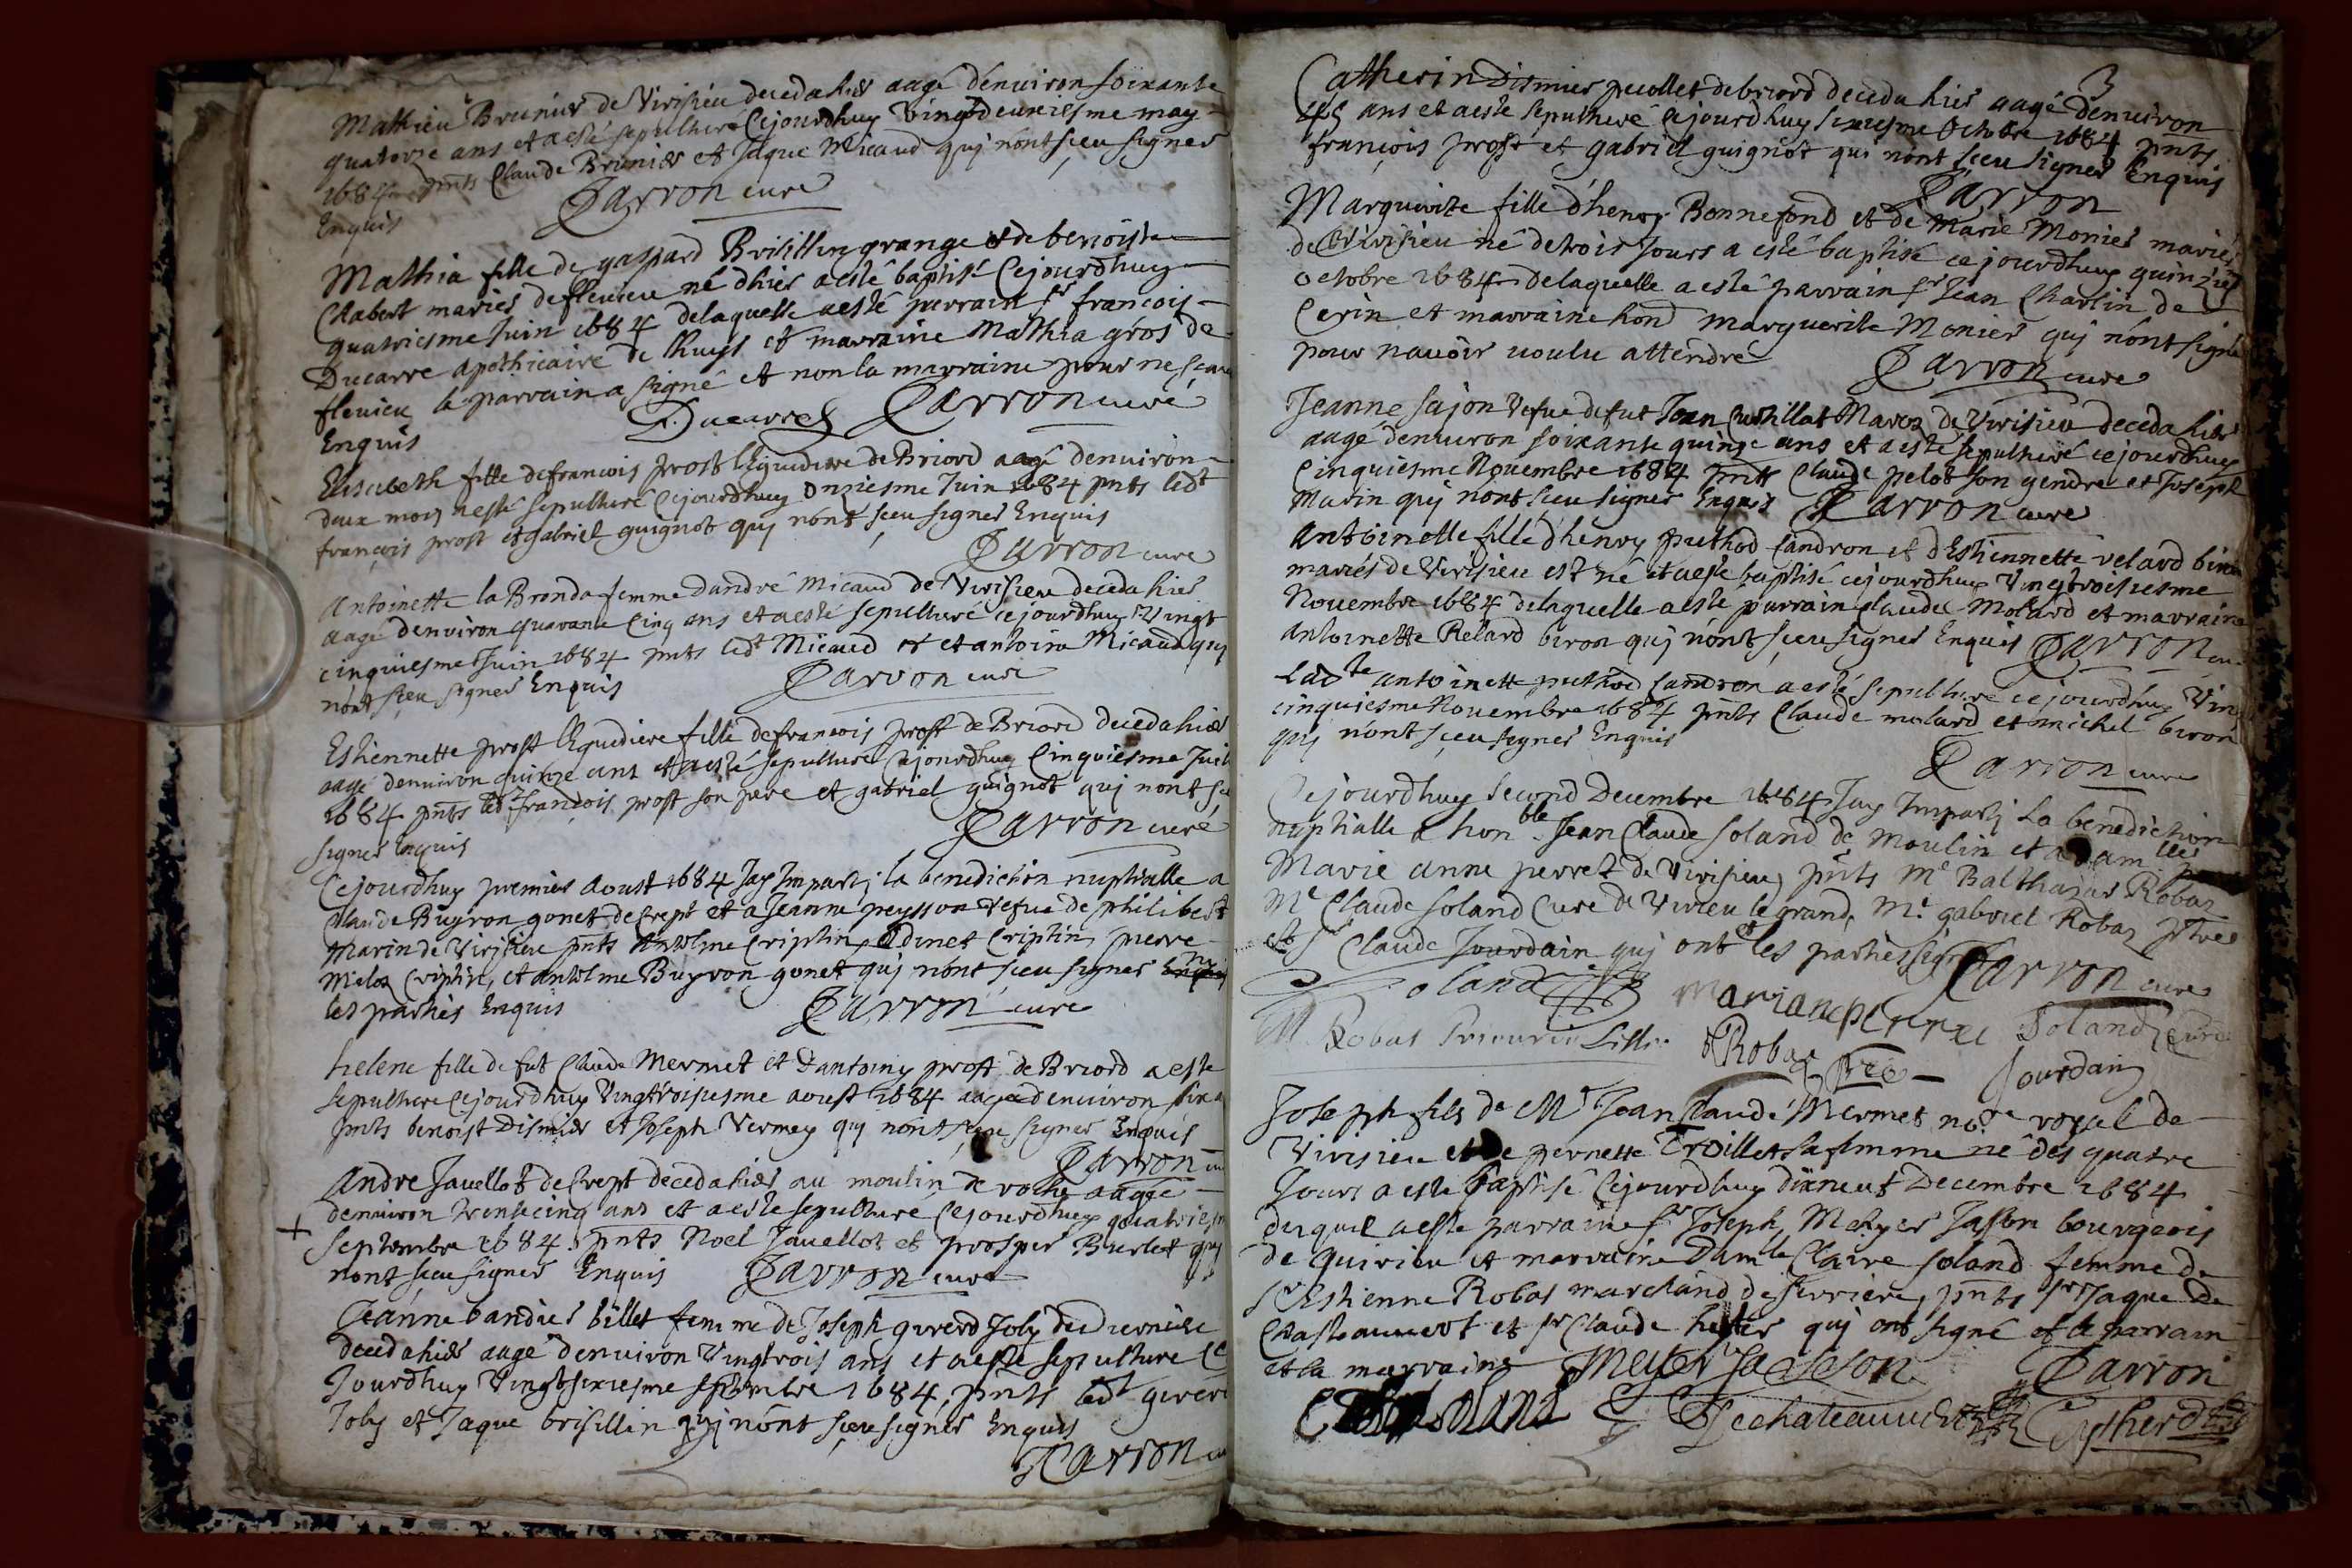 Mathieu Brunier de Virisieu deceda hier aagé denuiron soixante
quatorze ans et a esté sepulturé Cejourdhuy Vingtdeuxiesme may
1684 pnts Claude Brunier et Jaque Micaud quj nont sceu signer
Enquis Carron curé
Mathia fille de gaspard Brisillin grange et de benoiste
Chabert mariés de flevieu né dhier a esté baptisé Cejourdhuy
quatriesme Juin 1684 delaquelle a esté parrain sr francois
Ducarre apothicaire de lhuys et marraine Mathia gros de
flevieu le parrain a signé et non la marraine pour ne scau
Enquis Ducarre Carron curé
Elisabeth fille defrancois prost lEguediere de Briord aagé denuiron
deux mois a esté sepulturé Cejourdhuy Onziesme Juin 1684 pnts ledt
françois prost et gabriel guignot quj nont sceu signer Enquis
Carron curé
Antoinette la Bronda femme dandré Micaud de Virisieu deceda hier
aagé denviron quarante Cinq ans et a esté sepulturé cejourdhuy Vingt
cinquiesme Juin 1684 pnts ledt Micaud et antoine Micaud quj
nont sceu signer Enquis Carron curé
Estiennette prost lEguediere fille defrancois prost de Briord deceda hier
aagé denuiron quinze ans et a esté sepulturé Cejourdhuy Cinquiesme Juil
1684 pnts ledt françois prost son pere et gabriel guignot quj nont sce
signer Enquis Carron curé
Cejourdhuy premier Aoust 1684 Jay Impartj la benediction nuptialle a
Claude Buyron gonet de Crept et a Jeanne peysson vefue de philibert
Marin de Virisieu pnts Antelme Criptin, Edinet Criptin, pierre
Criptin, et antelme Buyron gonet quj nont sceu signer ny
les parties Enquis Carron curé
helene fille de fut Claude Mermet et Dantoiny prost de Briord a este
sepulturé Cejourdhuy Vingtroisiesme aoust 1684 aagé denuiron six a
pnts benoist Dismier et Joseph Vermey quj nont sceu signer Enquis
Carron cu
Andre Jauellot de Crept deceda hier au moulin de roche aagé
denuiron trentecinq ans et a esté sepulturé Cejourdhuy quatriesm
+ Septembre 1684 pnts Noel Jauellot et prosper Burlet quj
nont sceu signer Enquis Carron curé
Jeanne bandier billet femme de Joseph girerd Joly
deceda hier aagé denuiron Vingtrois ans et a esté sepulturé Ce
Jourdhuy Vingtsixiesme septembre 1684, pnts ledt girerd
Joly et Jaque brisillin quj nont sceu signer Enquis
Carron cu
3
Catherin Dismier pecollet de briord deceda hier aagé denuiron
45 ans et a esté sepulturé Cejourdhuy sixiesme Octobre 1684 pnts
françois prost et gabriel guignot qui nont sceu signer Enquis
Carron
Marguerite fille dhenry Bonnefond et de Marie Monier mariés
de Virisieu né detrois Jours a esté baptisé cejourdhuy quinzies
octobre 1684 delaquelle a esté parrain sr Jean Charlin de
Cerin et marraine hond Marguerite Monier quj nont signé
pour nauoir uoulu attendre Carron curé
Jeanne Sajon Vefue de fut Jean Curtillat Maroz de Virisieu deceda hier
aagé denuiron soixante quinze ans et a esté sepulturé cejourdhuy
Cinquiesme Nouembre 1684 pnts Claude pelot son gendre et Joseph
Marin quj nont sceu signer Enquis Carron curé
Antoinette fille dhenry puthod sandron et dEstiennette velard biron
mariés de Virisieu est né et a esté baptisé cejourdhuy Vingtroisiesme
Nouembre 1684 delaquelle a esté parrain Claude Molard et marraine
Antoinette Relard biron quj nont sceu signer Enquis Carron cu
Ladte antoinette puthod sandron a esté sepulturé cejourdhuy Ving
cinquiesme Nouembre 1684 pnts Claude molard et michel biron
quj nont sceu signer Enquis
Carron curé
Cejourdhuy second Decembre 1684 Jay Impartj La benediction
nuptialle a honble Jean Claude Soland de Moulin et a Damlle
Marie anne perret de Virisieu pnts Me Balthazar Robaz
Me Claude Soland Curé de Virieu le grand, Me gabriel Robaz ptre
et sr Claude Jourdain quj ont et les parties signé Carron curé
Soland Marianne perret Soland Curé
Robas Robaz Jourdain
Joseph fils de Mr Jean Claude Mermet nore royal de
Virisieu et de pernette Troillet sa femme né dés quatre
Jours a esté baptisé Cejourdhuy dixneuf Decembre 1684
duquel a esté parraine sr Joseph Meyer Jasson bourgeois
de quirieu et marraine Damle Claire Soland femme de
sr Estienne Robas marchand de serriere, pnts sr Jaque De
Chasteauuert et sr Claude quj ont signé et le parrain
et la marraine Meyer Jasson Carron
C Soland De chateauuert